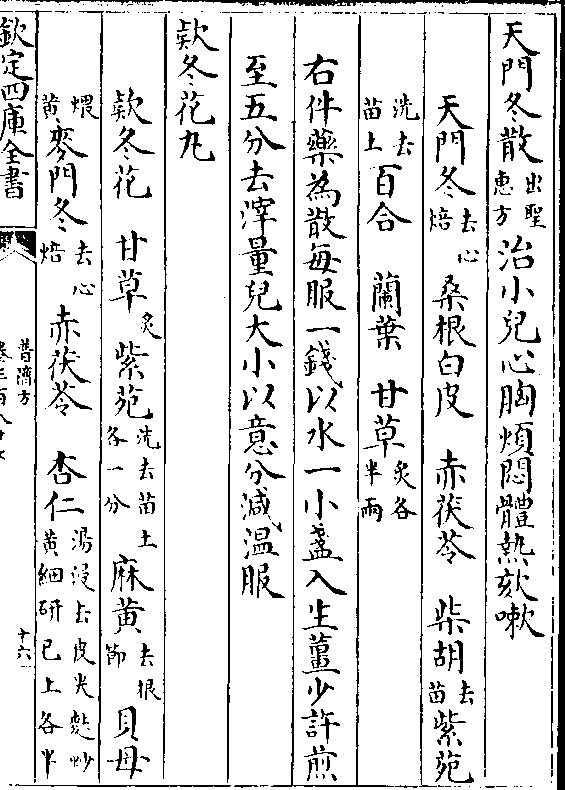 天門冬散出聖惠方治小兒心胸煩悶體熱欬嗽
天門冬去心焙桑根白皮　赤茯苓　柴胡去苗紫菀
洗去苗土百合　蘭葉　甘草炙各半兩
右件藥為散每服一錢以水一小盞入生薑少許煎
至五分去滓量兒大小以意分減温服
欵冬花丸
欵冬花　甘草炙紫菀洗去苗土各一分麻黄去根節貝母
煨黄麥門冬去心焙赤茯苓　杏仁湯浸去皮尖麩炒黄細研已上各半
欽定四庫全書
普濟方
十六